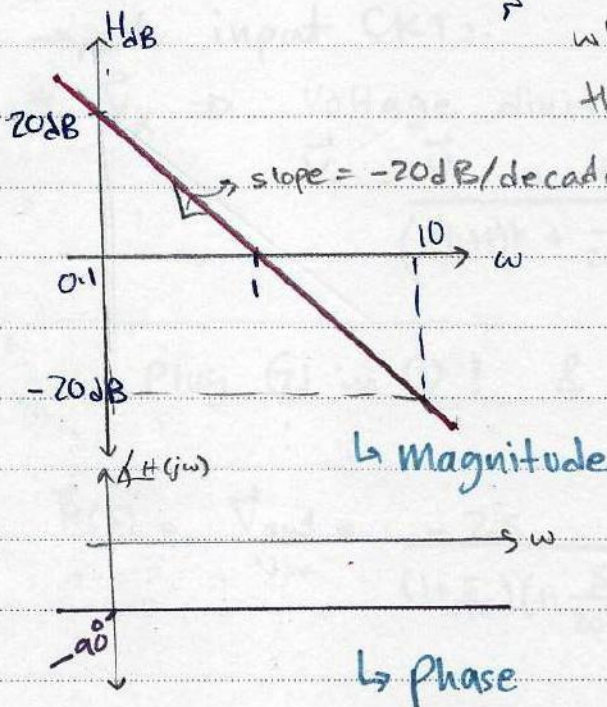 H_dB
w
th
20dB
slope = -20dB/decad
0.1
1
10
ω
-20dB
↳ Magnitude
∡H(jω)
ω
-90°
↳ phase